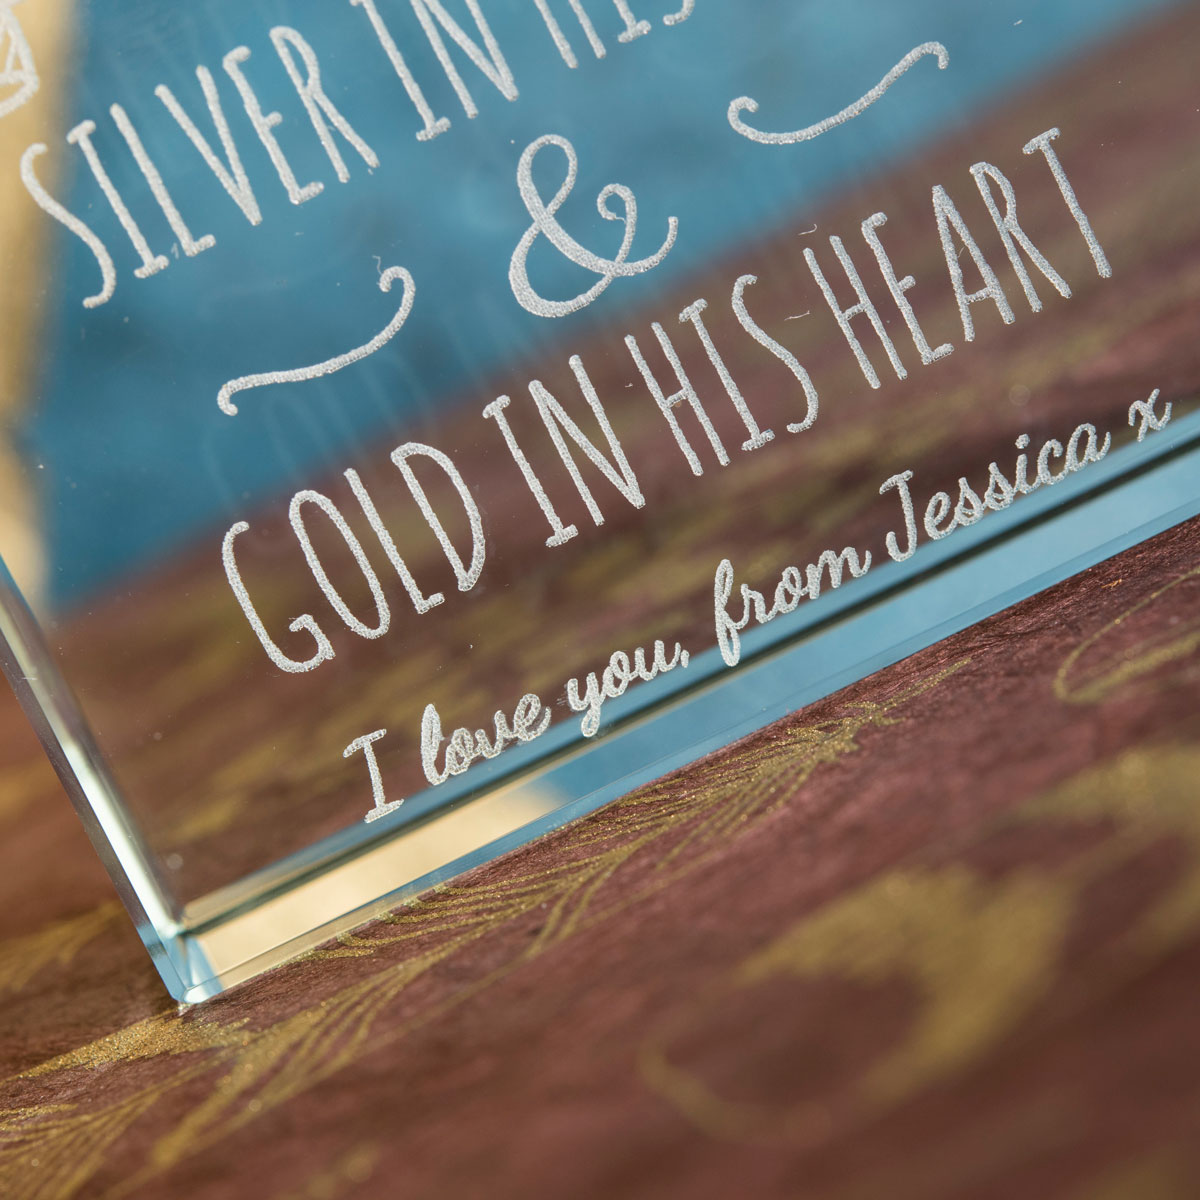 SILVER IN HIS
&
GOLD IN HIS HEART
I love you, from Jessica x